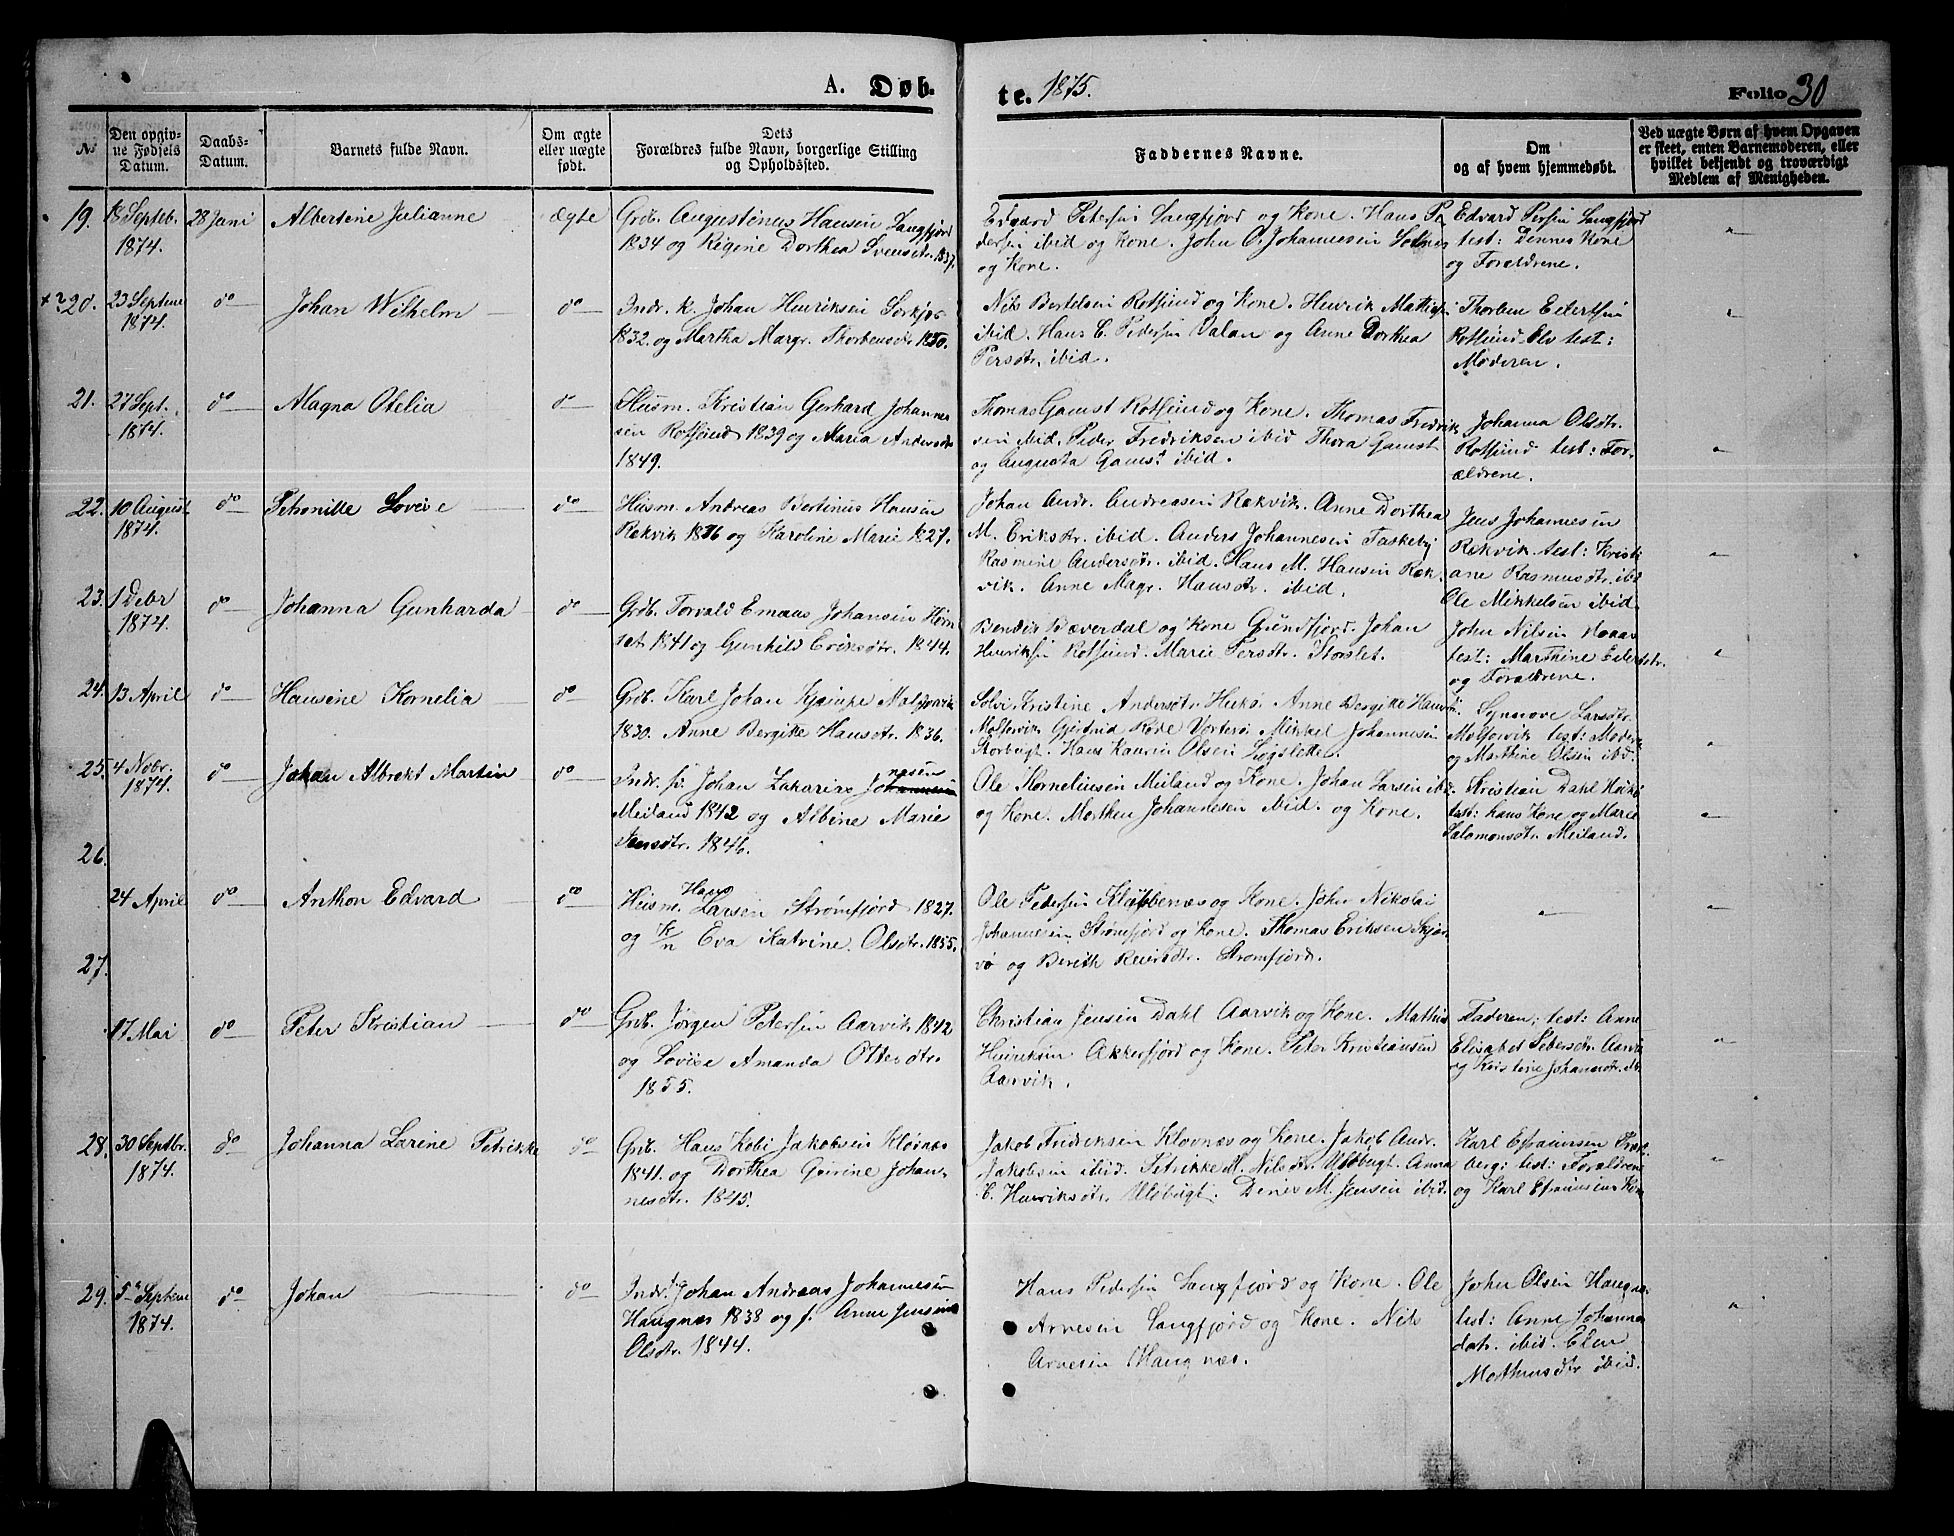 A. Døb-
te. 1875.
Folio 30
№
Den opgiv-
ne Fødsels
Datum.
Daabs-
Datum.
Barnets fulde Navn.
Om ægte
eller uægte
født.
Dets
Forældres fulde Navn, borgerlige Stilling
og Opholdssted.
Faddernes Navne.
Om
og af hvem hjemmedøbt.
Ved uægte Børn af hvem Opgaven
er skeet, enten Barnemoderen, eller
hvilket bekjendt og troværdigt
Medlem af Menigheden.
19. 18 Septeb.
1874.
28 Juni
Albertine Julianne
ægte
Grdb. Augustinus Hansen Langfjord
1834 og Regine Dorthea Svensdtr. 1837.
Edvard Petersen Langfjord og Kone. Hans Pe
dersen ibid og Kone. John O. Johannesen
og Kone.
Edvard Persen Langfjord
test: Dennes Kone
og Forældrene.
20. 23 Septem
1874.
do
Johan Wilhelm
do
Indr. k. Johan Henriksen
1832. og Martha Margr. Thorbensdtr. 1850.
Nils Bertelsen Rotsund og Kone. Henrik
ibid. Hans C. Pedersen Valan og Anne Dorthea
Persdtr. ibid.
Thorben Eilertsen
Rotsund Elv test:
Moderen.
21. 27 Sept.
1874.
do
Magna Otelia
do
Husm. Kristian Gerhard Johanne
sen Rotsund 1839 og Maria Andersdtr
1849.
Thomas Gamst Rotsund og Kone. Thomas Fredrik
sen ibid. Peder Fredriksen ibid Thora Gamst
og Augusta Gamst ibid.
Johanna Olsdtr.
Rotsund test: For-
ældrene.
22. 10 August
1874.
do
Petronille Lovise
do
Husm. Andreas Bertinus Hansen
Rekvik 1826 og Karoline Marie 1827.
Johan Andr. Andreasen Rekvik. Anne Dorthea
M. Eriksdtr. ibid. Anders Johannesen Taskeby
Rasmine Andersdtr. ibid. Hans M. Hansen Rek-
vik. Anne Magr. Hansdtr. ibid.
Jens Johannesen
Rekvik test: Kristi
ane Rasmusdtr. ibid
Ole Mikkelsen ibid.
23. 1 Debr
1874.
do
Johanna Gunharda
do
Grdb. Torvald Emaus Johansen
1841 og Gunhild Eriksdtr. 1844.
Bendix Bæverdal og Kone Grundfjord. Johan
Henriksen Rotsund. Marie Persdtr. Storslet.
John Nilsen
test: Marthine Eilertsdtr.
og Forældrene.
24. 13 April
do
Hansine Kornelia
do
Grdb. Karl Johan Kjempe
1830. Anne Bergithe Hansdtr. 1836.
Solvi Kristine Andersdtr. Anne Bergithe
Gjertrud Røde Vorterø. Mikkel Johannesen
Storbugt. Hans Kaurin Olsen
Synnøve Larsdtr.
test: Moderen
og Marthine Olsen ibd.
25. 4 Nobr.
1874.
do
Johan Albrekt Martin
do
Indr. p. Johan Zakarias Johannesen
Meiland 1842 og Albine Marie
Jensdtr. 1846.
Ole Korneliusen Meiland og Kone. Johan Larsen ibd.
og Kone. Morthen Johannesen ibid. og Kone.
Kristian Dahl
test: hans Kone og Marie
Salomonsdtr. Meiland.
26.
24 April
do
Anthon Edvard
do
Husm. Hans Larsen Strømfjord 1827.
og K/n Eva Katrine Olsdtr. 1855.
Ole Pedersen og Kone. John Nikolai
Johannesen Strømfjord og Kone. Thomas Eriksen Skjær-
vø og Berith Strømfjord.
27.
17 Mai
do
Peter Kristian
do
Grb. Jørgen Petersen Aarvik 1842
og Lovise Amanda Ottersdtr.
1855.
Christian Jensen Dahl Aarvik og Kone. Mathis
Henriksen Akkerfjord og Kone. Peter Kristiansen
Aarvik.
Faderen; test: Anne
Elisabet Aarvik
og Kristine Johansdtr. ibd.
28. 30 Septbr.
1874.
do
Johanna Larine Petrikke
do
Grb. Hans Kobi Jakobsen Klovnæs
1841. og Dorthea Johan-
nesdtr. 1845.
Jakob Fredriksen Klovnæs og Kone. Jakob Andr.
Jakobsen ibid. Petrikke M. Nilsdtr. Uløbugt. Anna
C. Henriksdtr. Uløbugt. Denis M. Jensen ibid.
Karl Efraimsen
berg: test: Forældrene
og Karl Efraimsens Kone
29. 5 Septem
1874.
do
Johan
do
Indr. Johan Andreas Johannesen
Haugnæs 1838 og f. Anne Jensine
Olsdtr. 1844.
Hans Pedersen Langfjord og Kone. Ole
Arnesen Langfjord og Kone. Nils
Arnesen Haugnæs.
John Olsen Haugnæs
test: Anne Johanna
datr. ibid. Elen
Morthensdtr ibid.